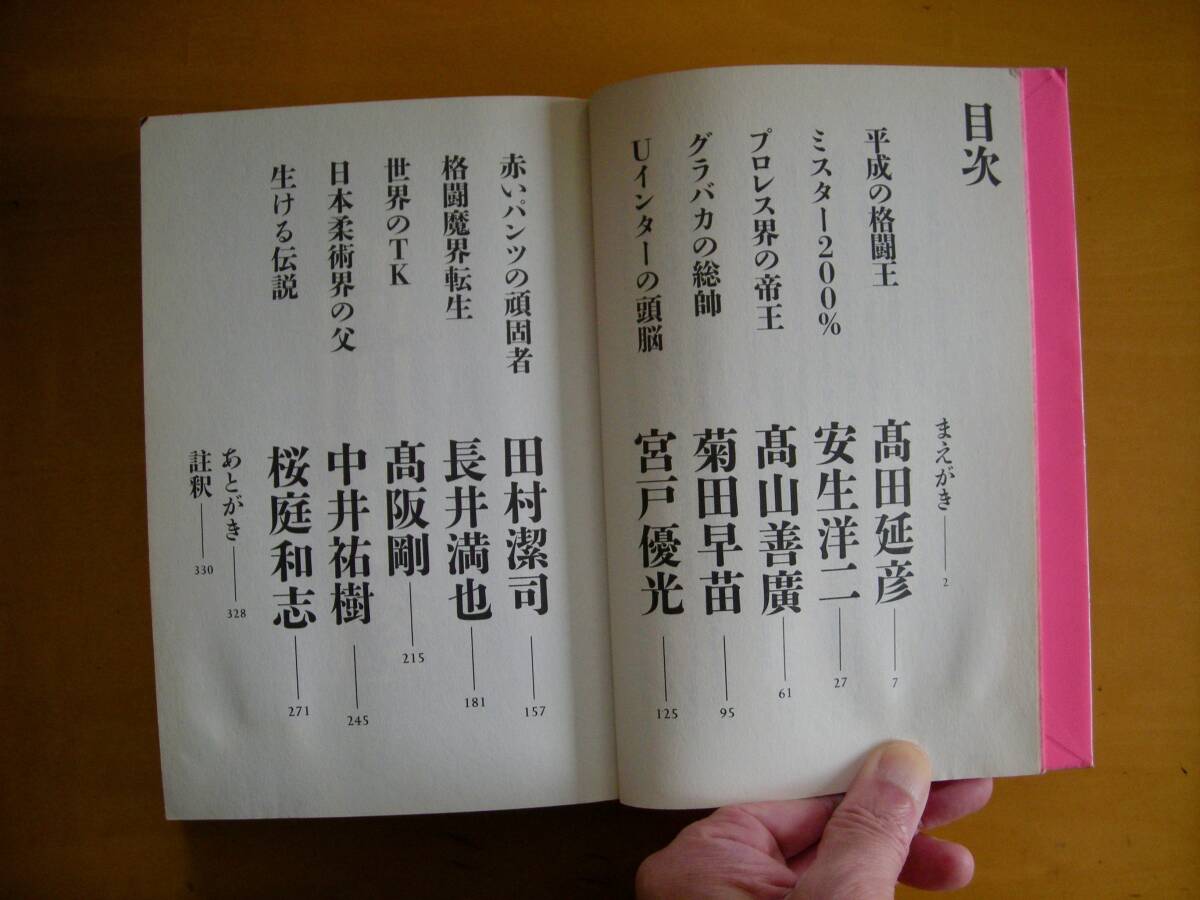 目次
まえがき 2
平成の格闘王 髙田延彦 7
ミスター200% 安生洋二 27
プロレス界の帝王 髙山善廣 61
グラバカの総帥 菊田早苗 95
Uインターの頭脳 宮戸優光 125
赤いパンツの頑固者 田村潔司 157
格闘魔界転生 長井満也 181
世界のTK 髙阪剛 215
日本柔術界の父 中井祐樹 245
生ける伝説 桜庭和志 271
あとがき 328
註釈 330